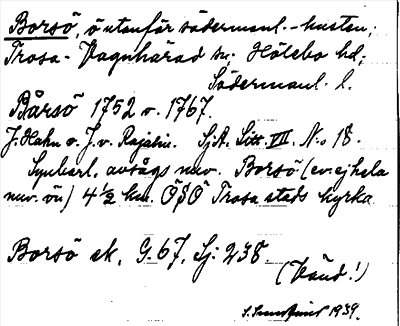 Borsö, ö utanför södermanl.-kusten;
Trosa-Vagnhärad sn; Hölebo hd;
Södermanl. l.
Bårsö 1752 o. 1767.
J. Hahn o. J. v. Rajalin. SjA. Sitt. VII. No 18.
Synbarl. avsågs nuv. Borsö (ev. ej hela
nuv. ön) 4½ km. ÖSÖ Trosa stads kyrka
Borsö ek. G. 67, Sj: 238.
(Vänd!)
1939.